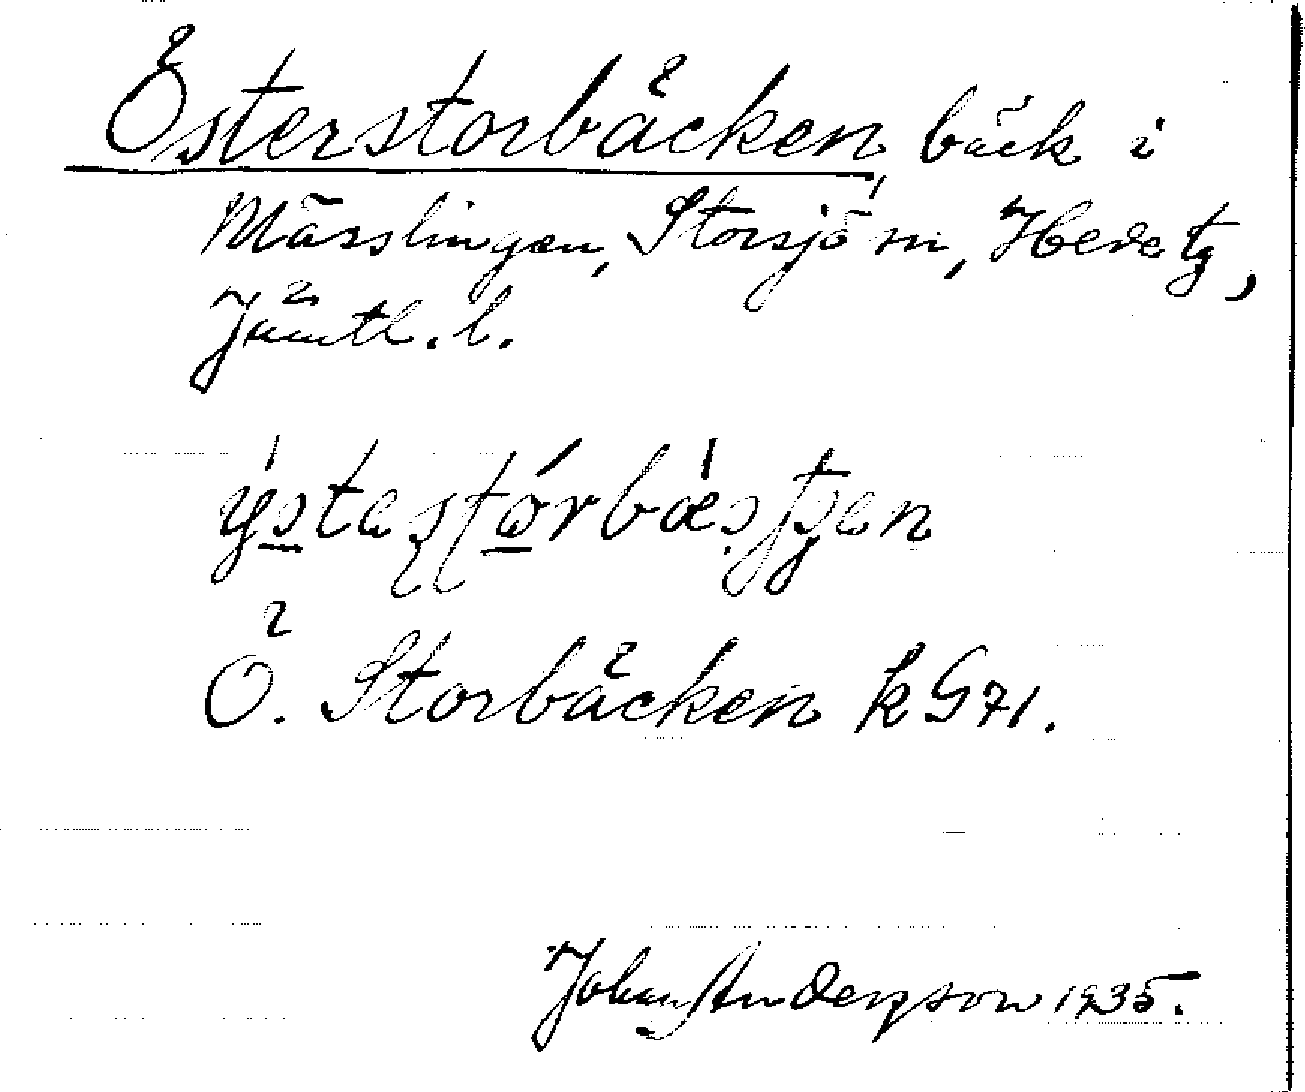 Österstorbäcken, bäck i
Mässlingen, Storsjö sn, Hede tg,
Jämtl. l.
Ö. Storbäcken k G 71.
Johan Anderzson 1935.